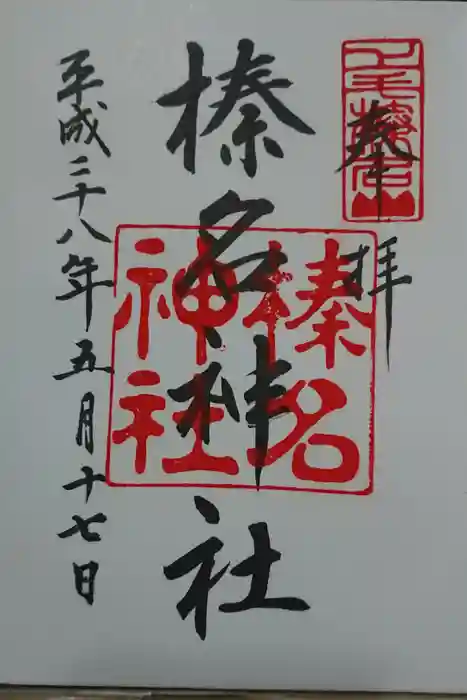 奉拝
上毛榛名山
榛名神社
榛名神社
平成二十八年五月十七日